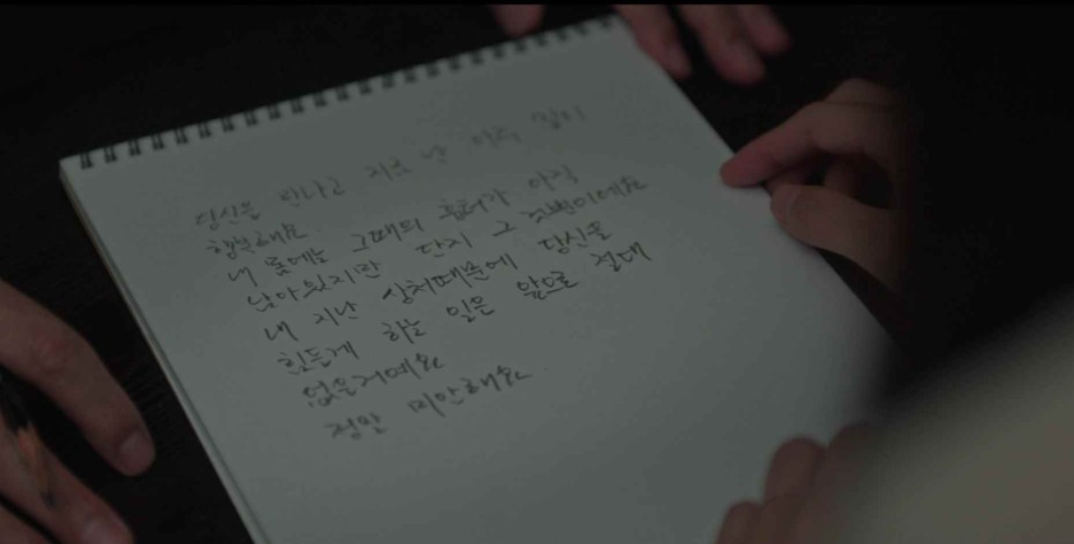 당신을 만나고 지금 난 아주 많이
행복해요.
내 몸에는 그때의 흉터가 아직
남아있지만 단지 그것뿐이에요
내 지난 상처때문에 당신을
힘든게 하는 일은 앞으로 절대
없을거예요
정말 미안해요.